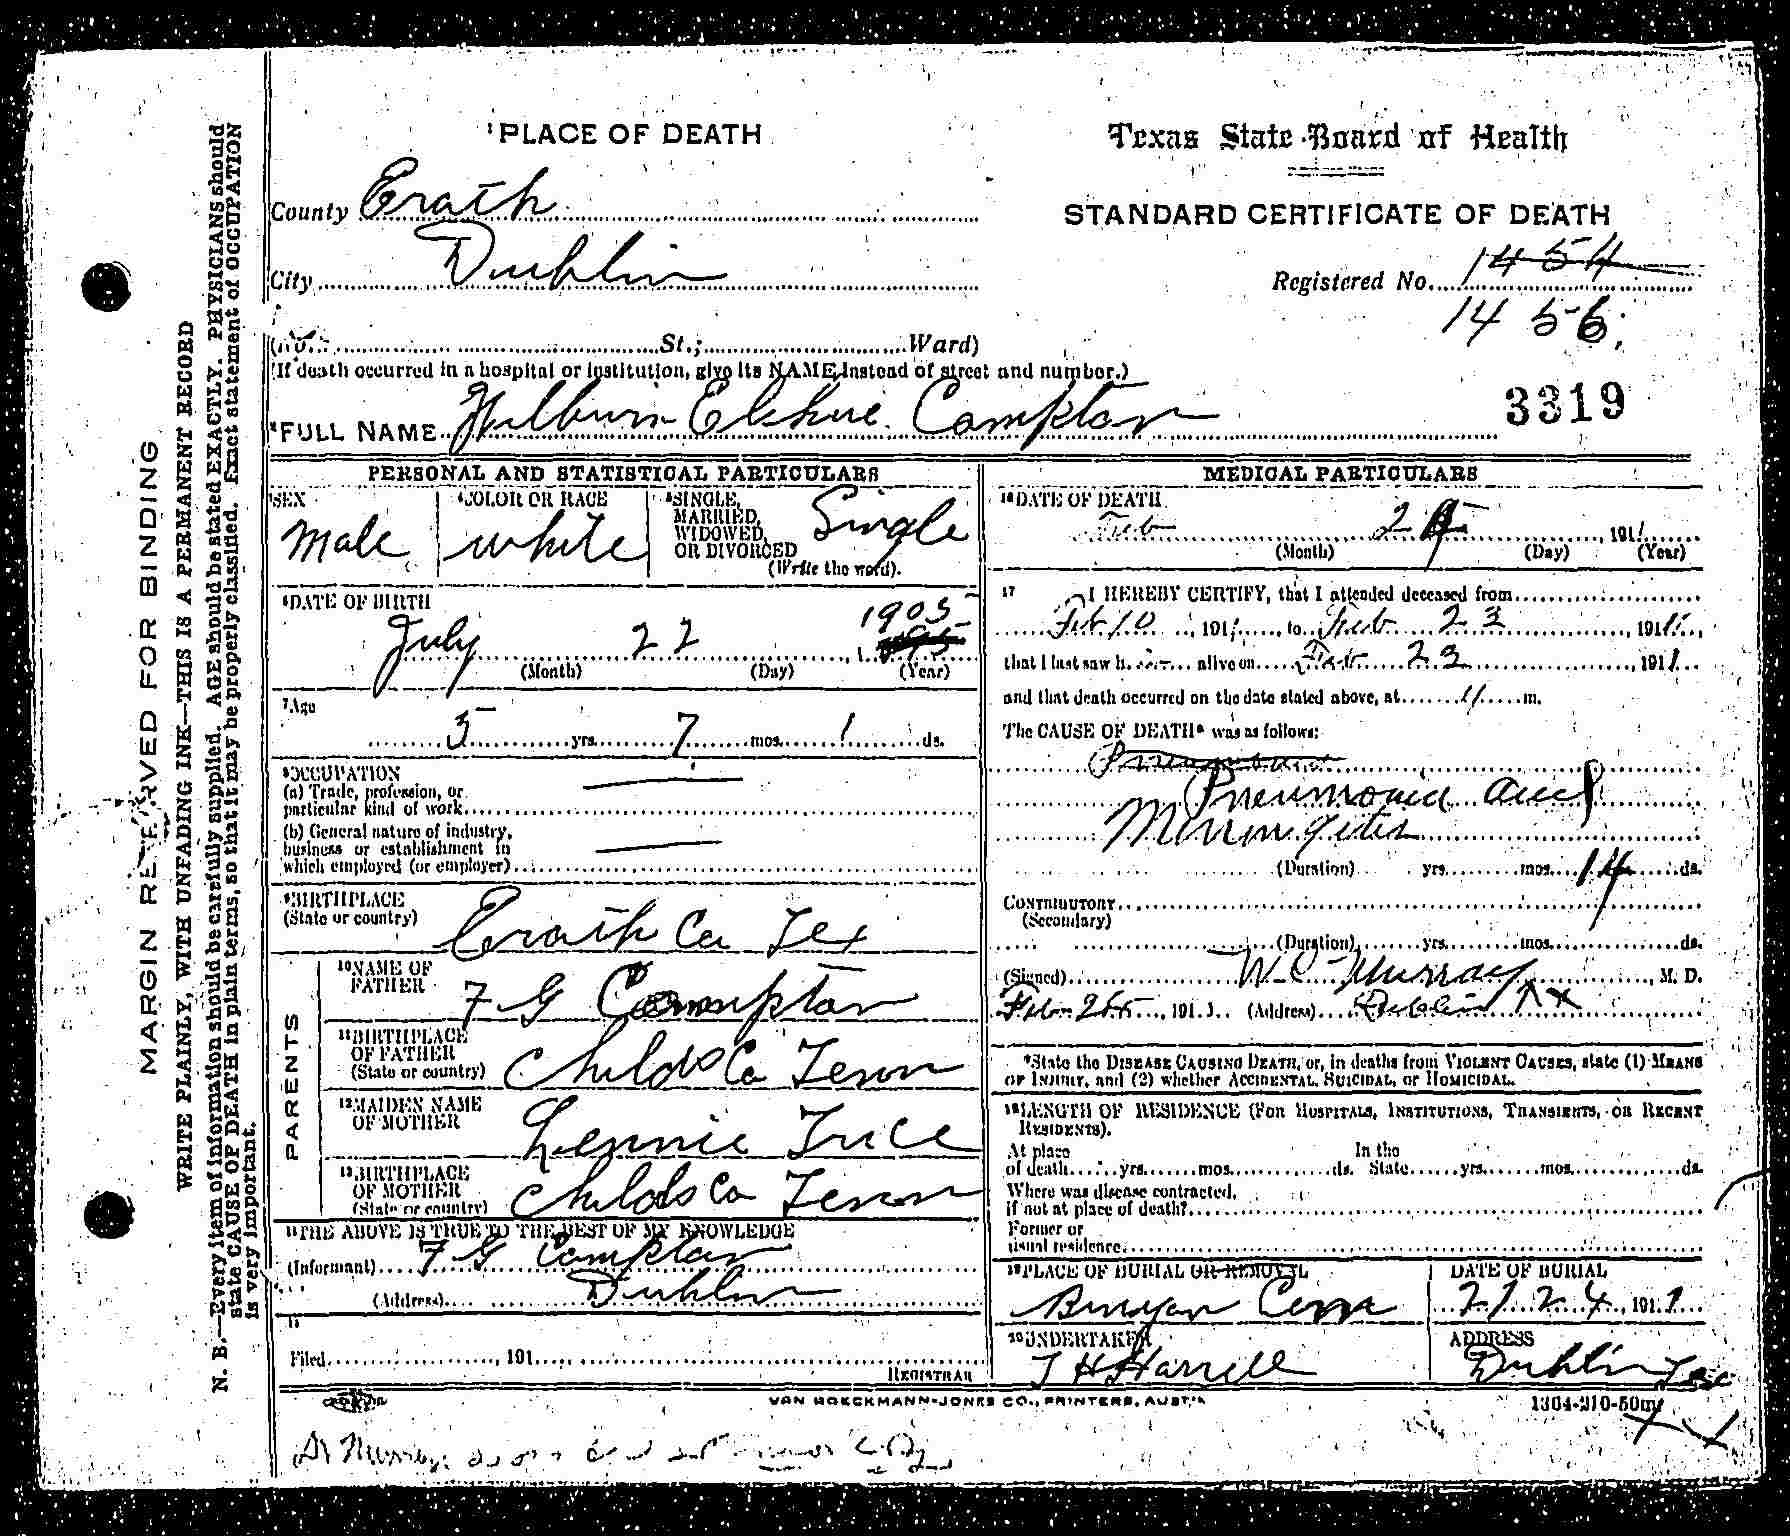 ¹PLACE OF DEATH
County Erath
City Dublin
(No. St.; Ward)
(If death occurred in a hospital or institution, give its NAME instead of street and number.)
²FULL NAME Wilburn Elihue Compton
Texas State Board of Health
STANDARD CERTIFICATE OF DEATH
Registered No. 1454
1456
3319
PERSONAL AND STATISTICAL PARTICULARS
³SEX
Male
⁴COLOR OR RACE
white
⁵SINGLE,
MARRIED,
WIDOWED,
OR DIVORCED
(Write the word).
Single
⁶DATE OF BIRTH
1905
July 22 1
(Month) (Day) (Year)
⁷Age
5 yrs. 7 mos. 1 ds.
⁸OCCUPATION
(a) Trade, profession, or
particular kind of work
(b) General nature of industry,
business or establishment in
which employed (or employer)
⁹BIRTHPLACE
(State or country)
Erath Co Tex
PARENTS
¹⁰NAME OF
FATHER
F G Compton
¹¹BIRTHPLACE
OF FATHER
(State or country)
Childs Co
¹²MAIDEN NAME
OF MOTHER
Lennie Tuce
¹³BIRTHPLACE
OF MOTHER
(State or country)
Childs Co
¹⁴THE ABOVE IS TRUE TO THE BEST OF MY KNOWLEDGE
(Informant) F G Compton
(Address) Dublin
15
Filed 191
REGISTRAR
MEDICAL PARTICULARS
¹⁶DATE OF DEATH
Feb 2 , 1911
(Month) (Day) (Year)
17 I HEREBY CERTIFY, that I attended deceased from
Feb 10, 191 , to Feb 23 1911,
that I last saw h alive on Feb 23, 1911
and that death occurred on the date stated above, at 11 m.
The CAUSE OF DEATH* was as follows:
Pneumonia
Pneumonia and
Menningetis
(Duration) yrs. mos. 14 ds.
CONTRIBUTORY
(Secondary)
(Duration) yrs. mos. ds.
(Signed) W. C. Murray, M. D.
Feb 25, 1911. (Address) Dublin Tx
*State the DISEASE CAUSING DEATH, or, in deaths from VIOLENT CAUSES, state (1) MEANS
OF INJURY, and (2) whether ACCIDENTAL, SUICIDAL, or HOMICIDAL.
¹⁸LENGTH OF RESIDENCE (FOR HOSPITALS, INSTITUTIONS, TRANSIENTS, OR RECENT
RESIDENTS).
At place In the
of death yrs. mos. ds. State yrs. mos. ds.
Where was disease contracted,
if not at place of death?
Former or
usual residence
¹⁹PLACE OF BURIAL OR REMOVAL
Bunyan Cem
DATE OF BURIAL
2 24, 1911
²⁰UNDERTAKER
J H Harrell
ADDRESS
Dublin Tex
VAN BOECKMANN-JONES CO., PRINTERS, AUSTIN
1304-210-50m
Dr Murray
MARGIN RESERVED FOR BINDING
WRITE PLAINLY, WITH UNFADING INK—THIS IS A PERMANENT RECORD
N. B.—Every item of information should be carefully supplied. AGE should be stated EXACTLY. PHYSICIANS should
state CAUSE OF DEATH in plain terms, so that it may be properly classified. Exact statement of OCCUPATION
is very important.